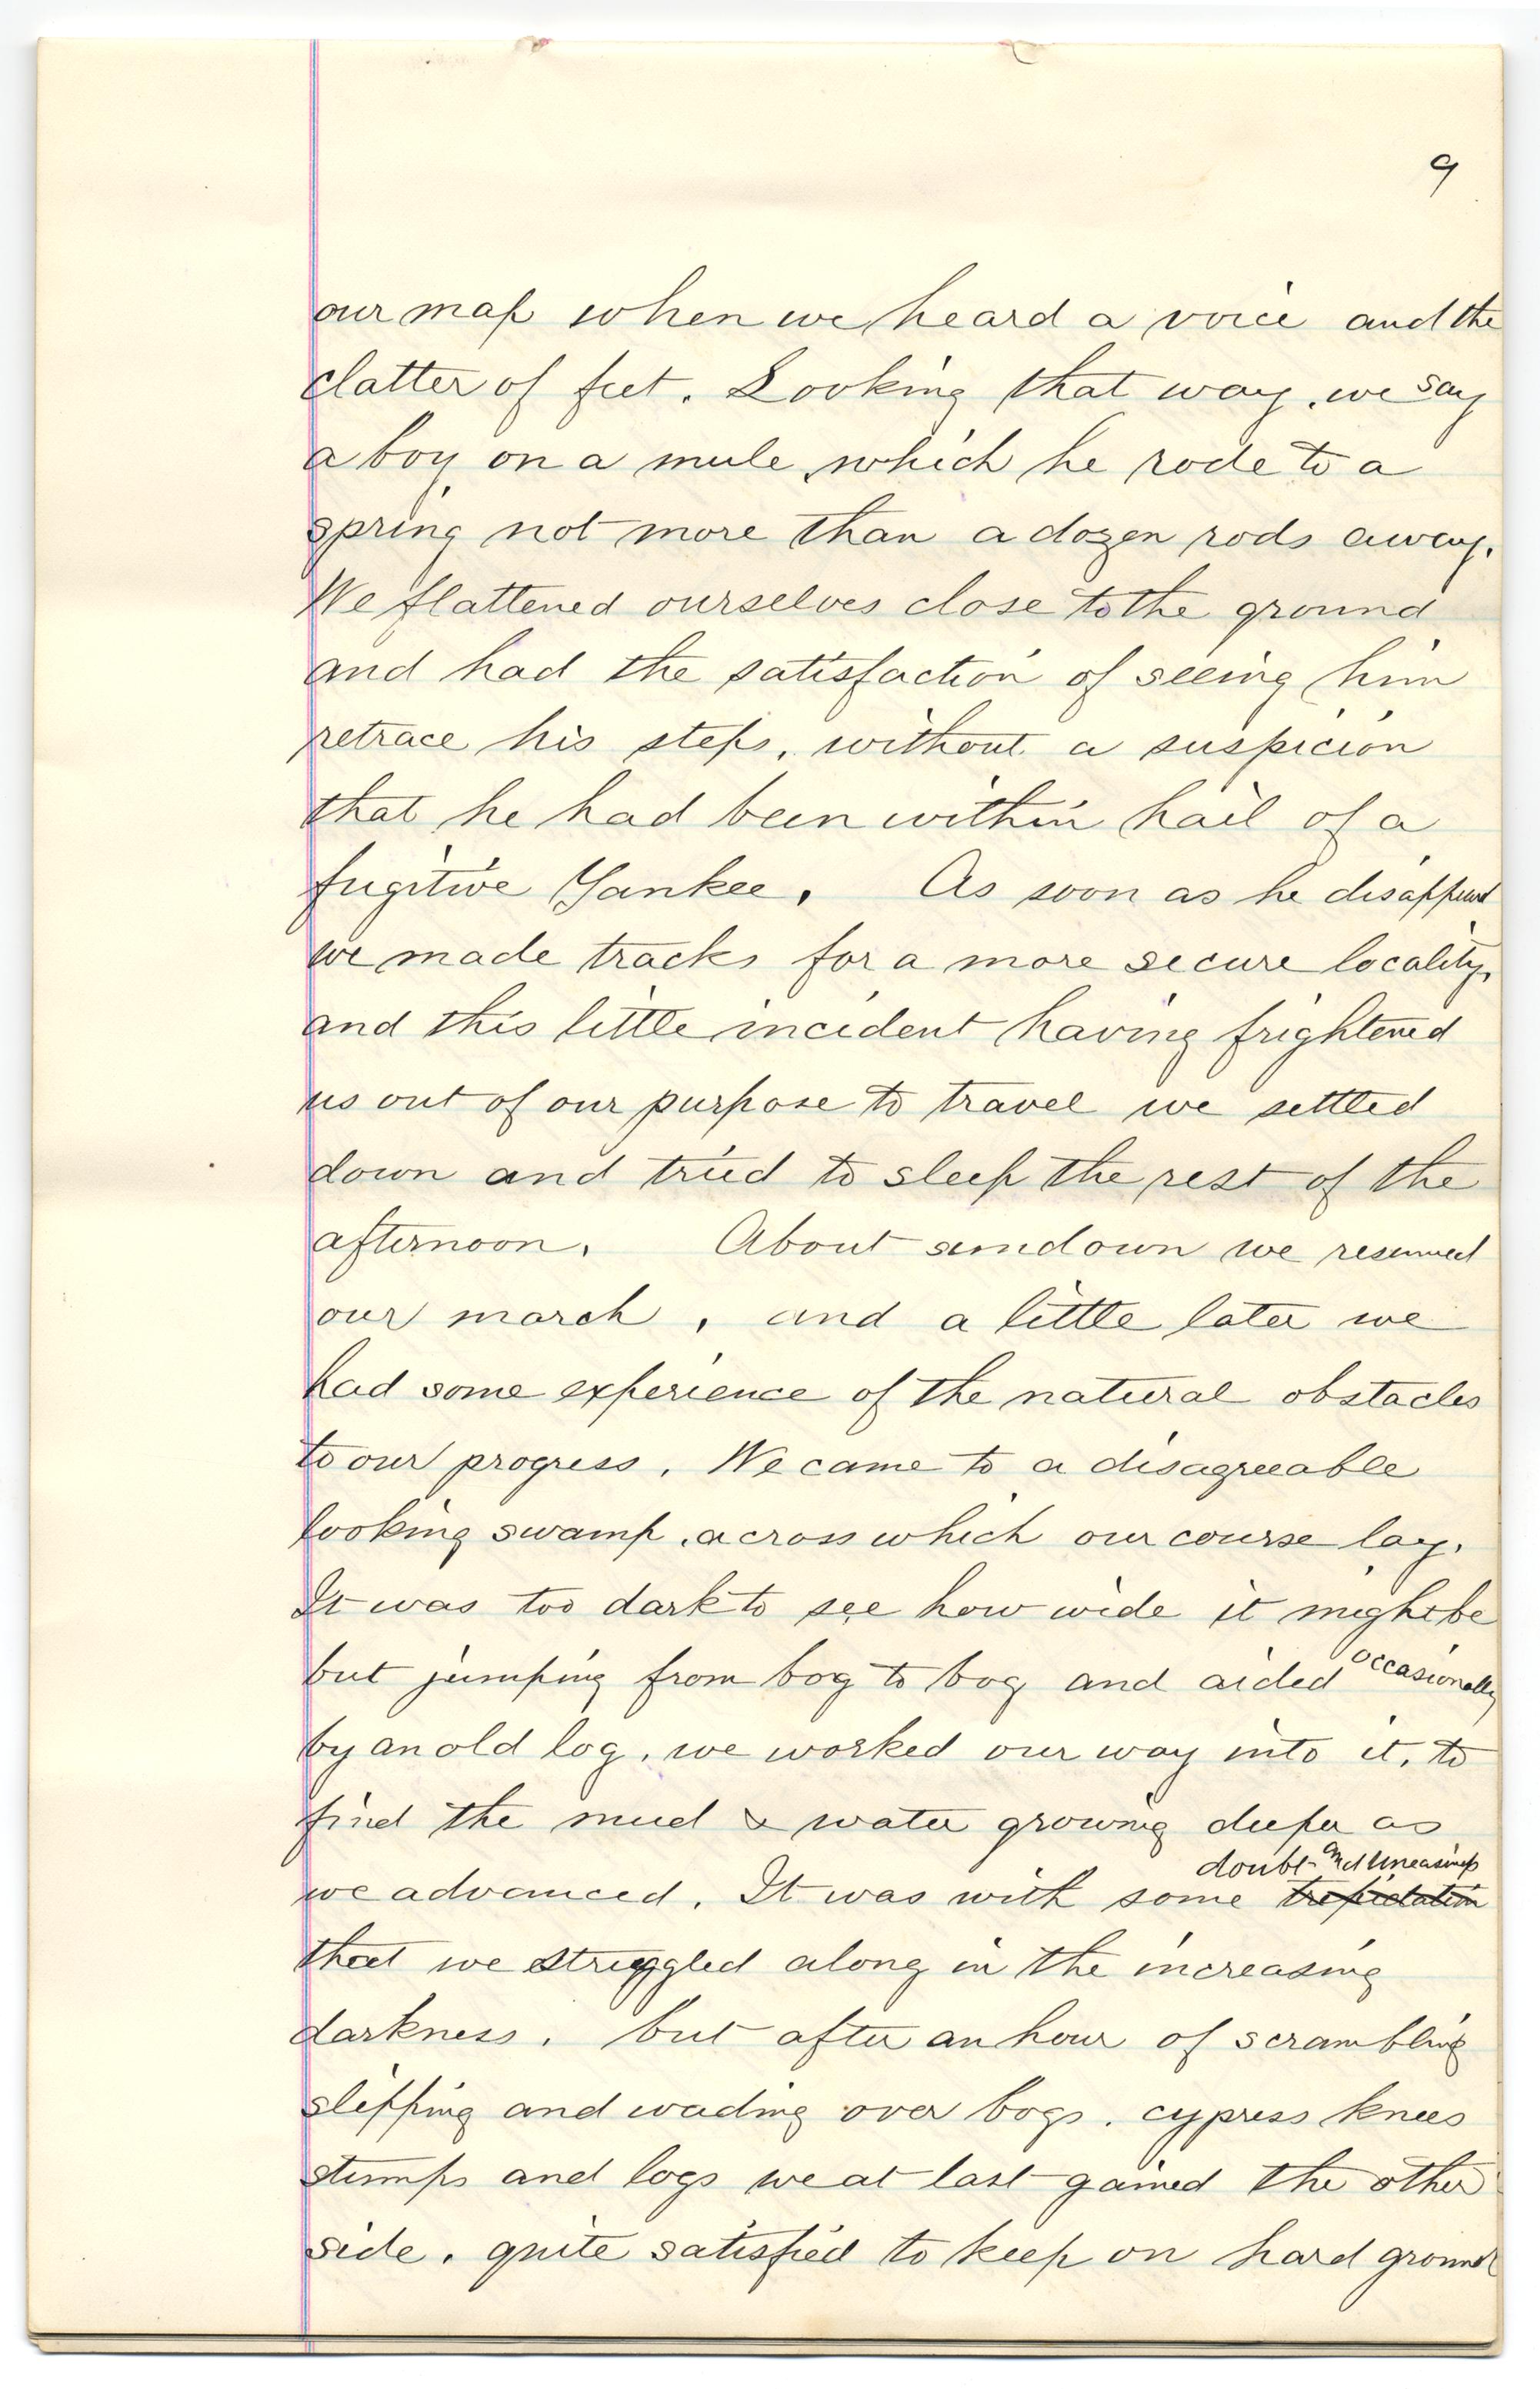 9
our map when we heard a voice and the
clatter of feet. Looking that way, we say
a boy on a mule, which he rode to a
spring not more than a dozen rods away.
We flattened ourselves close to the ground
and had the satisfaction of seeing him
retrace his steps, without a suspicion
that he had been within hail of a
fugitive Yankee. As soon as he disappeard
we made tracks for a more secure locality,
and this little incident having frightened
us out of our purpose to travel we settled
down and tried to sleep the rest of the
afternoon. About sundown we resumed
our march, and a little later we
had some experience of the natural obstacles
to our progress. We came to a disagreeable
looking swamp, across which our course lay.
It was too dark to see how wide it might be
but jumping from bog to bog and aided occasionally
by an old log, we worked our way into it, to
find the mud & water growing deeper as
doubt and uneasiness
we advanced. It was with some trepidation
that we struggled along in the increasing
darkness. but after an hour of scrambling
slipping and wading over bogs, cypress knees
stumps and logs we at last gained the other
side, quite satisfied to keep on hard ground